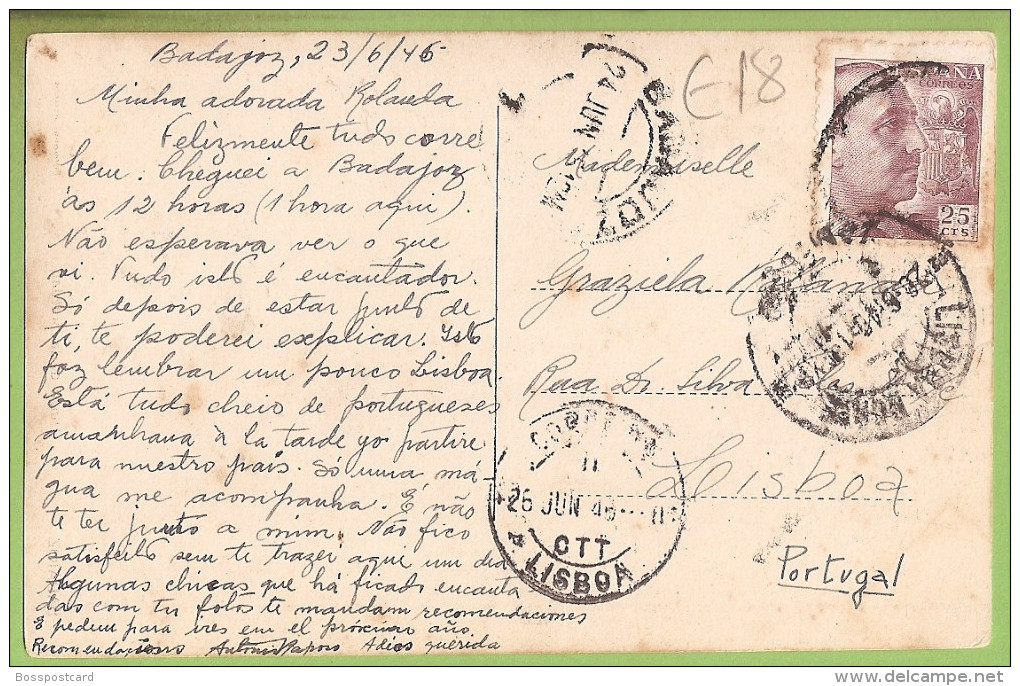 Badajoz, 23/6/46
Minha adorada Rolanda
Felizmente tudo corre
bem. Cheguei a Badajoz
ás 12 horas (1 hora aqui).
Não esperava ver o que
vi. Tudo isto é encantador.
Só depois de estar junto de
ti, te poderei explicar. Isto
faz lembrar um pouco Lisboa.
Está tudo cheio de portugueses
amanhana à la tarde yo partire
para nuestro pais. Só uma má-
gua me acompanha. É não
te ter junto a mim. Não fico
satisfeito sem te trazer aqui um dia
Algunas chicas que há ficado encanta
das com tu fotos te mandam recomendaciones
E pedem para ires em el próximo año.
Recomendaciones Antonio Adios querida
E18
ESPAÑA
CORREOS
25
CTS
Mademoiselle
Graziela
Rua Dr. Silva
Lisboa
Portugal
24 JUN
26 JUN 46
CTT
LISBOA
4
Bosspostcard
delcampe.net